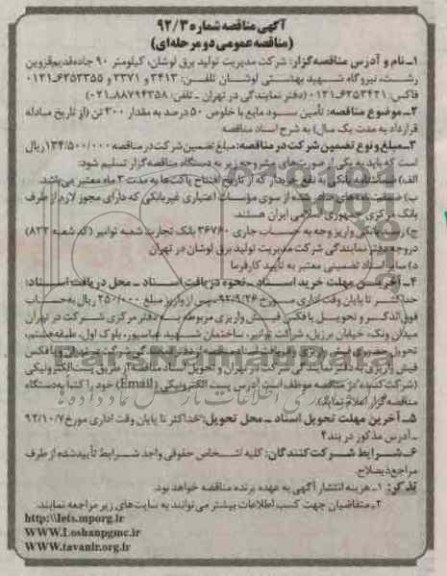 آگهی مناقصه شماره ۹۲/۳
(مناقصه عمومی دو مرحله‌ای)
۱ـ نام و آدرس مناقصه گزار: شرکت مدیریت تولید برق لوشان، کیلومتر ۹۰ جاده قدیم قزوین
رشت، نیروگاه شهید بهشتی لوشان تلفن: ۳۴۱۳ و ۳۳۷۱ و ۶۲۵۳۳۵۵-۰۱۳۱
فاکس: ۶۲۵۳۴۲۱-۰۱۳۱ (دفتر نمایندگی در تهران ـ تلفن: ۸۸۷۹۴۳۵۸-۰۲۱)
۲ـ موضوع مناقصه: تأمین سود مایع با خلوص ۵۰ درصد به مقدار ۳۰۰ تن (از تاریخ مبادله
قرارداد به مدت یک سال) به شرح اسناد مناقصه
۳ـ مبلغ و نوع تضمین شرکت در مناقصه: مبلغ تضمین شرکت در مناقصه ۱۳۴/۵۰۰/۰۰۰ ریال
است که باید به یکی از صورت‌های مشروحه زیر به دستگاه مناقصه گزار تسلیم شود:
الف) ضمانتنامه بانکی به نفع خریدار که از تاریخ افتتاح پاکت‌ها به مدت ۳ ماه معتبر می‌باشد.
ب) ضمانت نامه‌های از سوی مؤسسات اعتباری غیربانکی که دارای مجوز لازم از طرف
بانک مرکزی جمهوری اسلامی ایران هستند.
ج) رسید بانکی واریز وجه به حساب جاری ۳۶۷۶۰ بانک تجارت شعبه توانیر (کد شعبه ۸۲۲)
در وجه دفتر نمایندگی شرکت مدیریت تولید برق لوشان در تهران
د) سایر اسناد تضمینی معتبر به تأیید کارفرما
۴ـ آخرین مهلت خرید اسناد ـ نحوه دریافت اسناد ـ محل دریافت اسناد:
حداکثر تا پایان وقت اداری مورخ ۹۲/۹/۲۶ پس از واریز مبلغ ۲۵۰/۰۰۰ ریال به حساب
فوق الذکر و تحویل یا فکس فیش واریزی مربوطه به دفتر مرکزی شرکت در تهران
میدان ونک، خیابان برزیل، شرکت توانیر، ساختمان شهید عباسپور، بلوک اول، طبقه هشتم،
تحویل یا فکس
فیش واریزی به دفتر نمایندگی شرکت در تهران و تحویل اسناد مناقصه از طریق پست الکترونیکی
(شرکت کننده در مناقصه موظف است آدرس پست الکترونیکی (Email) خود را کتباً به دستگاه
مناقصه گزار اعلام نماید).
۵ـ آخرین مهلت تحویل اسناد ـ محل تحویل: حداکثر تا پایان وقت اداری مورخ ۹۲/۱۰/۷
ـ آدرس مذکور در بند ۴
۶ـ شرایط شرکت کنندگان: کلیه اشخاص حقوقی واجد شرایط تأیید شده از طرف
مراجع ذیصلاح.
تذکر: ۱ـ هزینه انتشار آگهی به عهده برنده مناقصه خواهد بود.
۲ـ متقاضیان جهت کسب اطلاعات بیشتر می‌توانند به سایت‌های زیر مراجعه نمایند.
http:\\Iets.mporg.ir
WWW.Loshanpgmc.ir
WWW.tavanir.org.ir